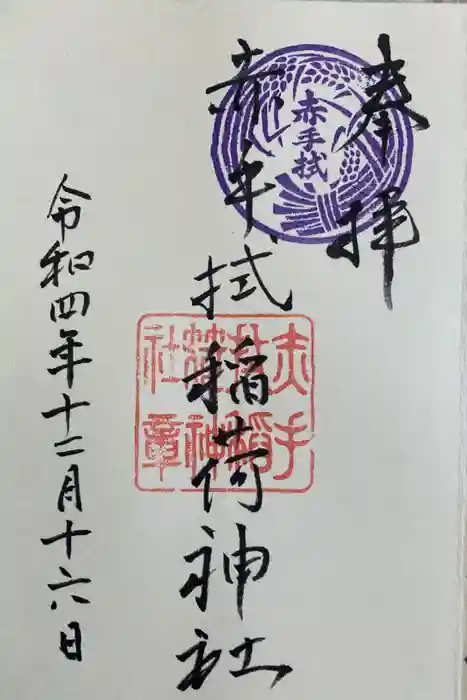 奉拝
赤手拭
赤手拭稲荷神社
赤手拭稲荷神社章
令和四年十二月十六日